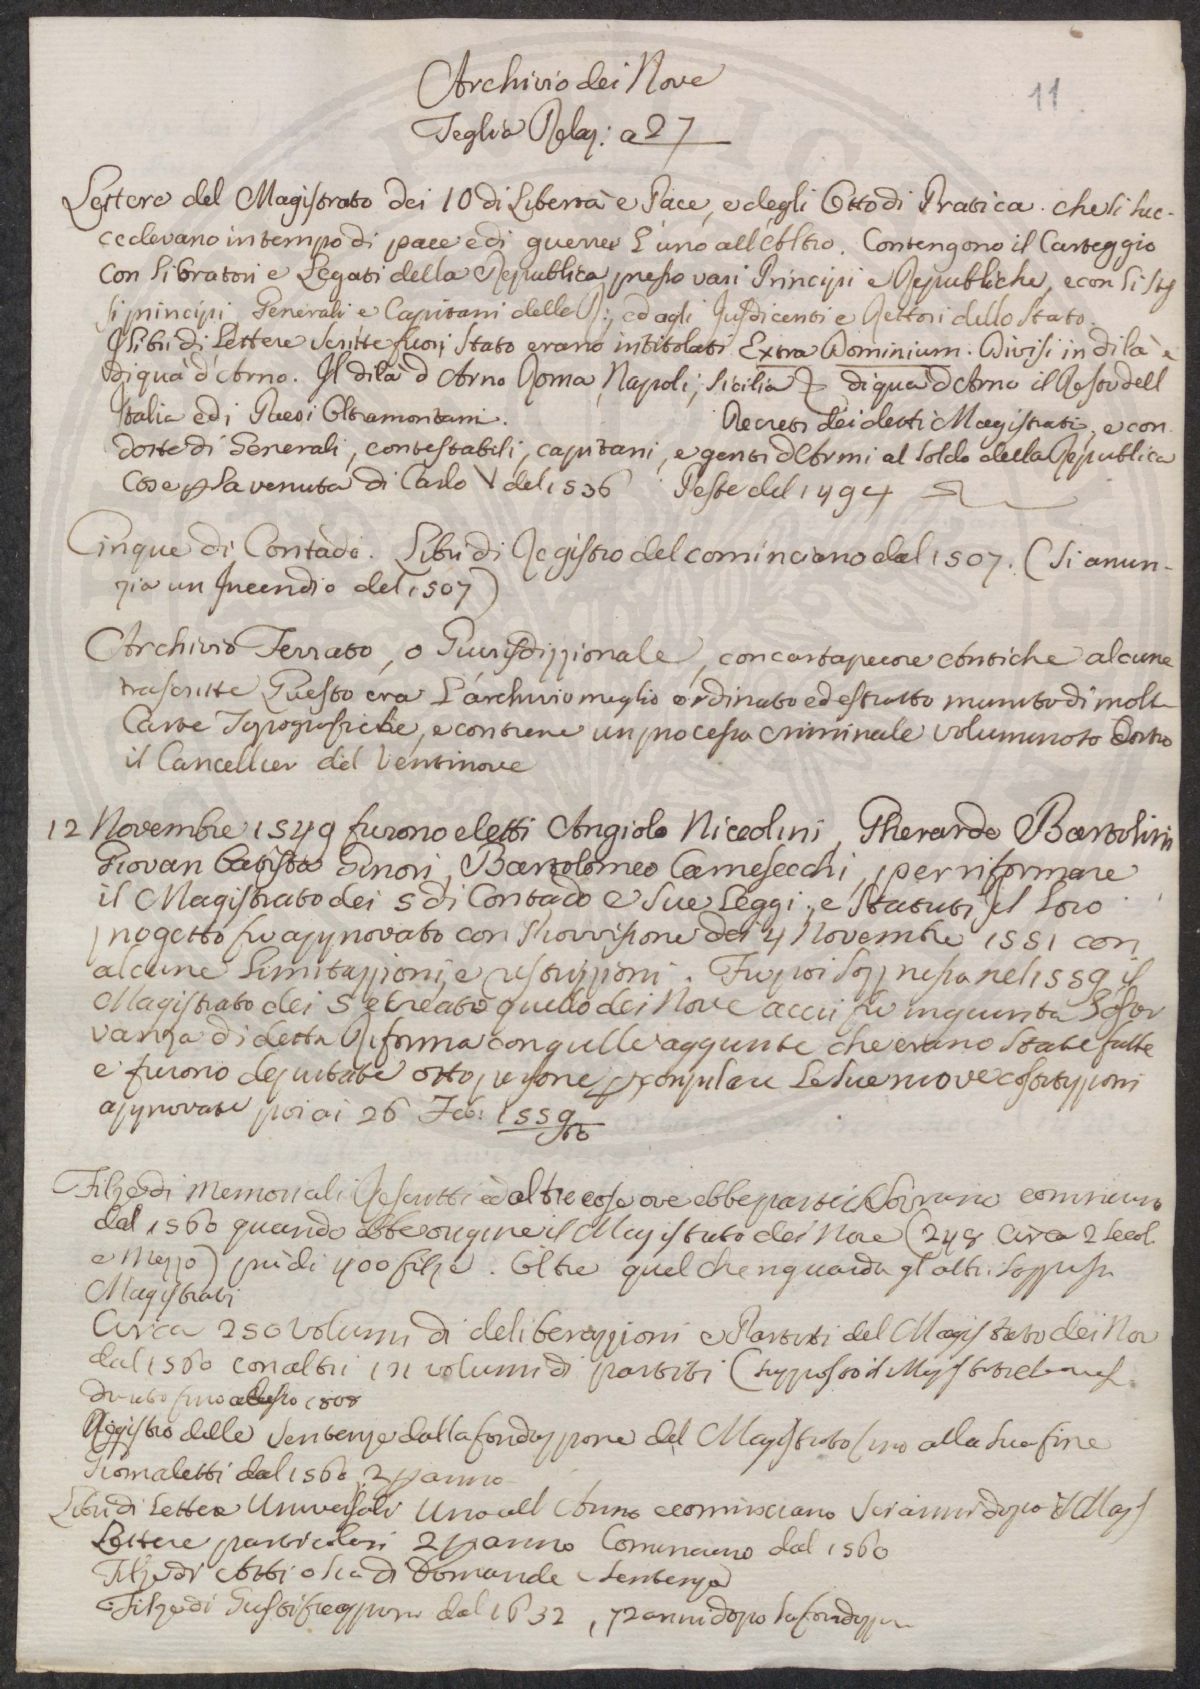 11
Archivio dei Nove
Teglia Relaz: a 27
Lettere del Magistrato dei 10 di Libertà e Pace, e degli Otto di Pratica. che si suc-
cedevano in tempo di pace e di guerra l'uno all'Altro. Contengono il Carteggio
con li Oratori e Legati della Republica presso vari Principi e Republiche, e con li stes
si principi Generali e Capitani delle R:, ed agli Jusdicenti e Rettori dello Stato.
I libri di Lettere scritte fuori Stato erano intitolati Extra Dominium. Divisi in di là e
di quà d'Arno. Il di là d Arno Roma, Napoli, Sicilia di quà d Arno il Resto dell
Italia e di Paesi Oltramontani. Decreti dei detti Magistrati, e con
dotte di Generali, contestabili, capitani, e genti d'Armi al soldo della Republica
Cose p la venuta di Carlo V del 1536 Peste del 1494
Cinque di Contado. Libri di Registro del cominciano dal 1507. (Si anun-
zia un Incendio del 1507)
Archivio Serrato, o Giurisdizzionale, con cartapecore Antiche alcune
trascritte Questo era l'archivio meglio ordinato ed estratto munito di molte
Carte Topografiche, e contiene un processo criminale voluminoso contro
il Cancellier del Ventinove
12 Novembre 1549 furono eletti Angiolo Niccolini, Gherardo Bartolini
Giovan Batista Ginori, Bartolomeo Carnesecchi, per riformare
il Magistrato dei 5 di Contado e sue Leggi, e Statuti il loro
progetto fu approvato con Provvisione del 4 Novembre 1551 con
alcune limitazzioni, e restrizzioni. Fu poi soppresso nel 1559 il
Magistrato dei 5 e creato quello dei Nove a cui fu ingiunta l'osser
vanza di detta Riforma con quelle aggiunte che erano state fatte
e furono deputate otto persone p compilare le sue nuove costituzzioni
approvate poi ai 26 Feb: 1559
60
Filze di Memoriali Rescritti ed altre cose ove ebbe parte il Sovrano cominciano
dal 1560 quando ebbe origine il Magistrato dei Nove (248 circa 2 secol
e mezzo) più di 400 filze. Oltre quel che riguarda gl'altri soppressi
Magistrati
Circa 250 Volumi di deliberazzioni e Partiti del Magistrato dei Nov
dal 1560 con altri volumi di partiti
durato fino 1808
Registro delle Sentenze dalla fondazzione del Magistrato fino alla sua fine
Giornaletti dal 1560 2 p anno
Libri di Lettere Universali Uno all Anno e cominciano sei anni dopo il Mag
Lettere particolari 2 p anno Cominciano dal 1560
Filze di Atti o sia di Domande e Sentenze
Filze di Giustificazzioni dal 1632, 72 anni dopo la fondazzione